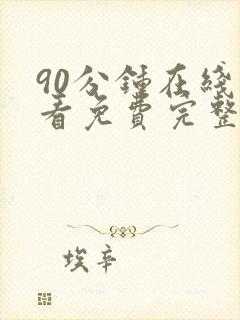 90分鍾在綫
看免費完整
埃辛